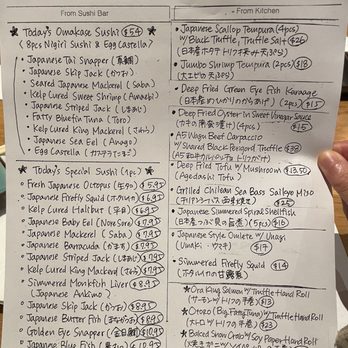 From Sushi Bar
★ Today's Omakase Sushi $54
(8pcs Nigiri Sushi & Egg Castella)
• Japanese Tai Snapper (真鯛)
• Japanese Skip Jack (かつお)
• Seared Japanese Mackerel (Saba)
• Kelp Cured Sweet Shrimp (Amaebi)
• Japanese Striped Jack (しまあじ)
• Fatty Bluefin Tuna (Toro)
• Kelp Cured King Mackerel (さわら)
• Japanese Sea Eel (Anago)
• Egg Castella (カステラ)
★ Today's Special Sushi (1pc)
• Fresh Japanese Octopus (生タコ) $5.95
• Japanese Firefly Squid (ホタルイカ) $6.95
• Kelp Cured Halibut (平目) $6.95
• Japanese Baby Eel (Nore Sore) $7.95
• Japanese Mackerel (Saba) $7.95
• Japanese Barracuda (かます) $7.95
• Japanese Striped Jack (しまあじ) $7.95
• Kelp Cured King Mackerel (さわら) $7.95
• Simmered Monkfish Liver $8.95
(Japanese Ankimo)
• Japanese Skip Jack (かつお) $8.95
• Japanese Butter Fish $8.95
• Golden Eye Snapper (金目鯛) $10.95
• Japanese Blue Fish $10.95
From Kitchen
• Japanese Scallop Tempura (4pcs)
w/ Black Truffle, Truffle Salt $26
(日本産ホタテ トリュフ 天ぷら)
• Jumbo Shrimp Tempura (2pcs) $18
(大エビの天ぷら)
• Deep Fried Green Eye Fish Karaage
(2pcs) $15
• Deep Fried Oyster in Sweet Vinegar Sauce
(4pc) $15
• A5 Wagyu Beef Carpaccio
w/ Shaved Black Perigord Truffle $38
• Deep Fried Tofu w/ Mushroom $13.50
(Agedashi Tofu)
• Grilled Chilean Sea Bass Saikyo Miso
$25
• Japanese Simmered Spiral Shellfish
(5pcs) $16
• Japanese Style Omlete w/ Unagi
(Unaki・ウマキ) $19
• Simmered Firefly Squid $14
(ホタルイカの甘露煮)
★ Ora King Salmon w/ Truffle Hand Roll
(サーモン トリュフの手巻) $13
★ Otoro (Big Fatty Tuna) w/ Truffle Hand Roll
(大トロ トリュフの手巻) $23
★ Baked Snow Crab w/ Soy Paper Hand Roll